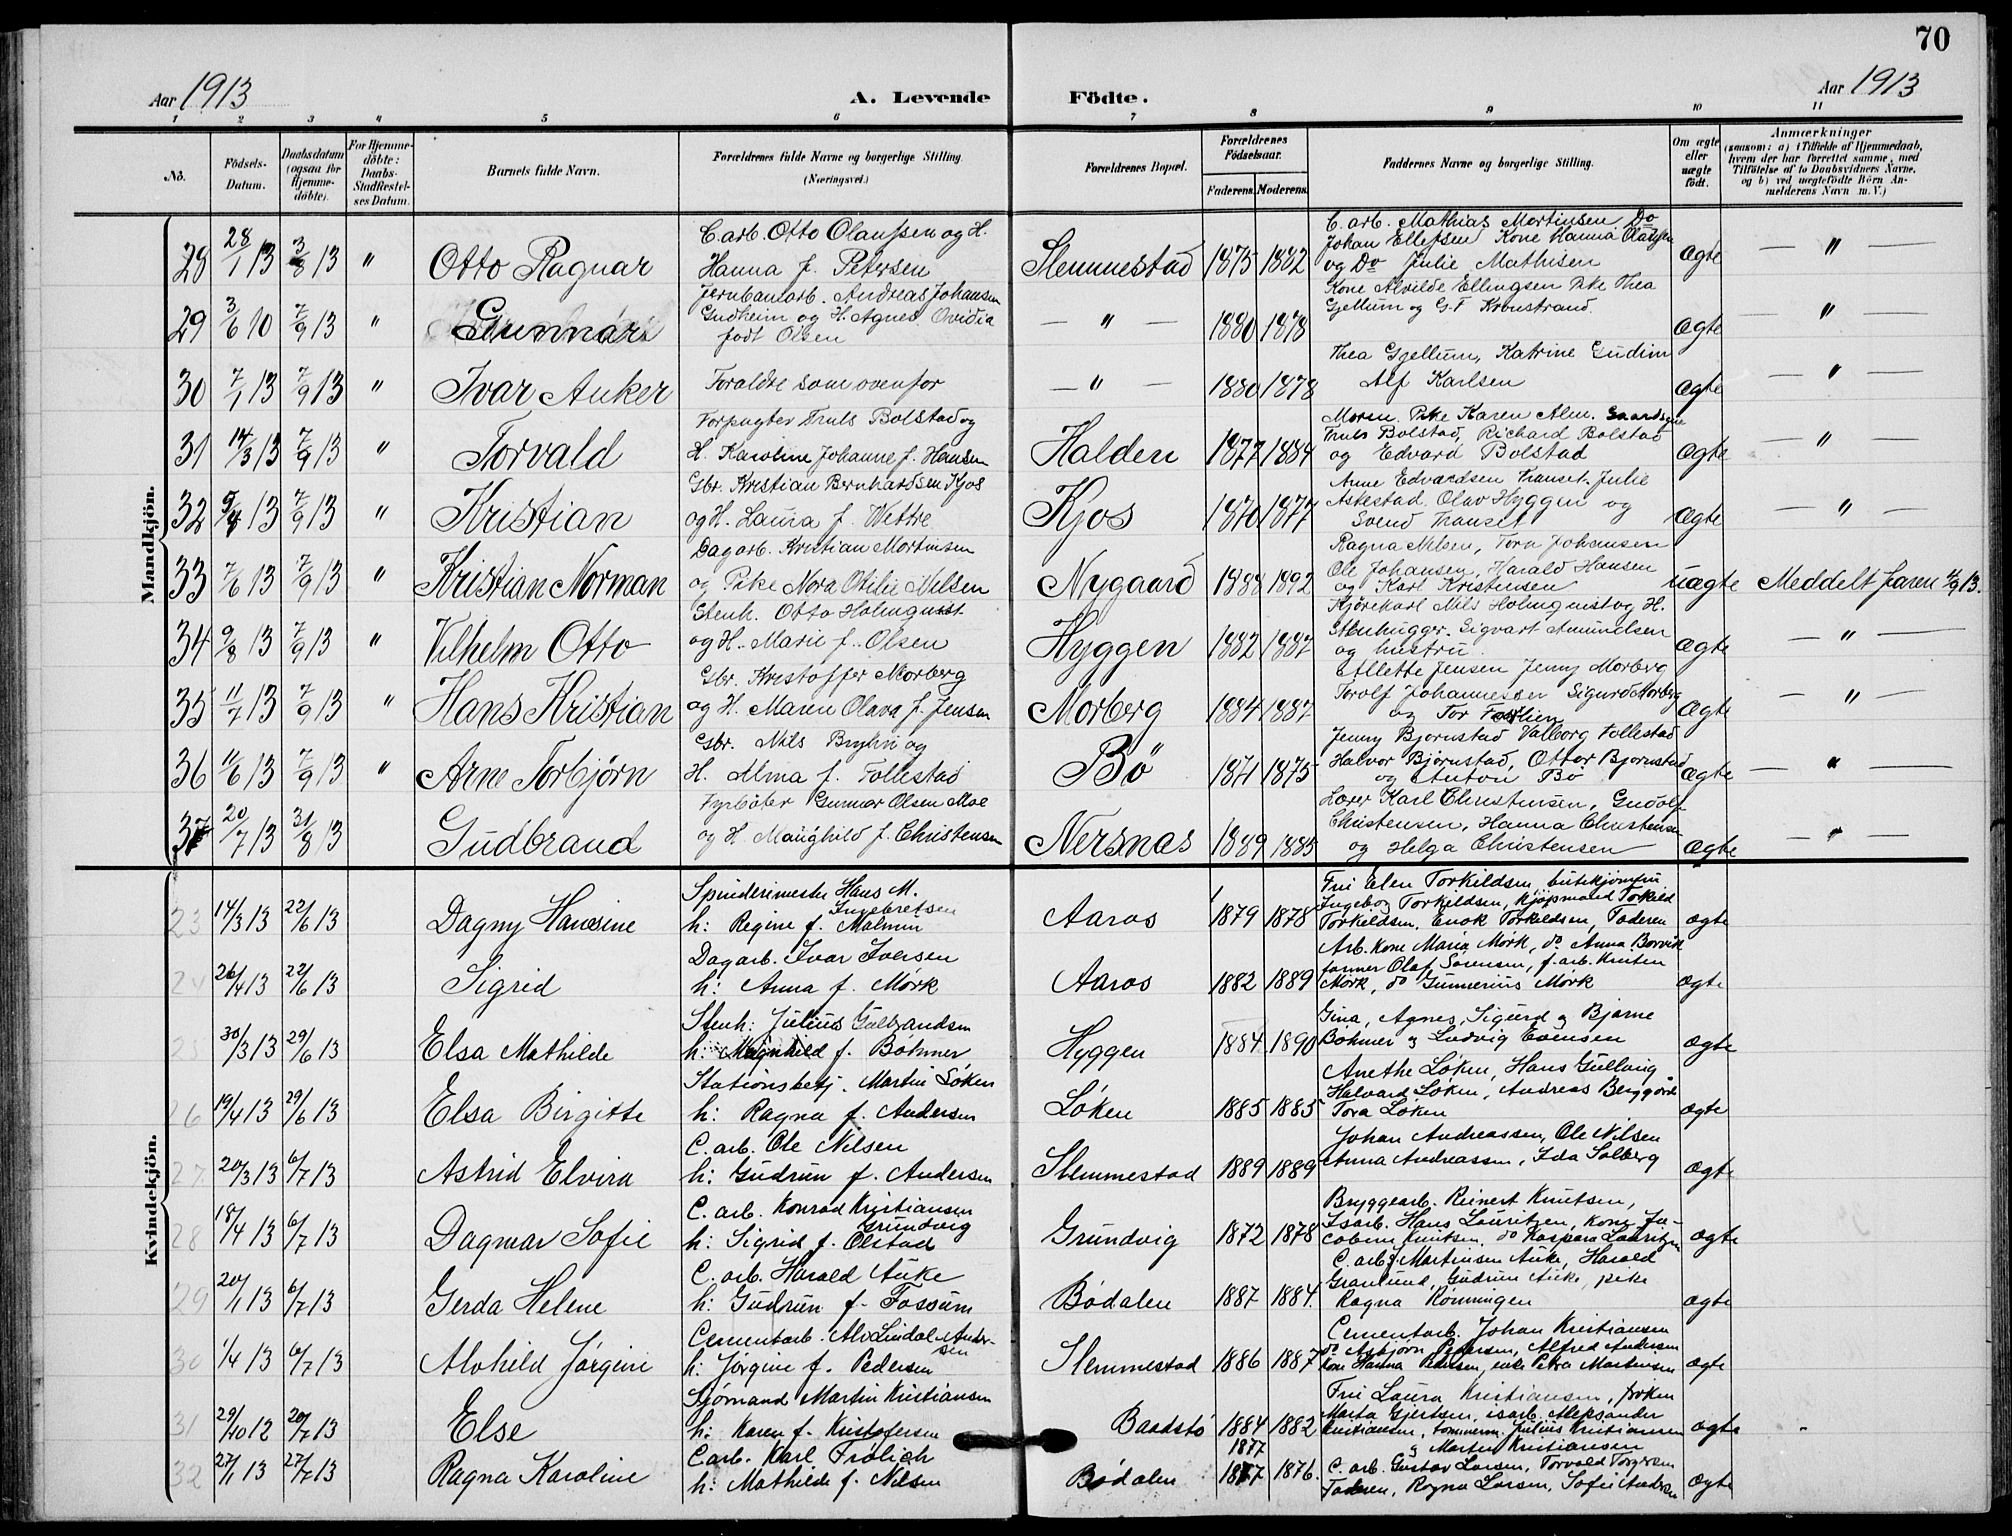 70
Aar 1913
A. Levende
Födte.
Aar 1913
1 2 3 4 5 6 7 8 9 10 11
No.
Födsels-Datum.
Daabsdatum (ogsaa for Hjemme-döbte).
For Hjemme-döbte: Daabs-Stadfæstel-ses Datum.
Barnets fulde Navn.
Forældrenes fulde Navne og borgerlige Stilling. (Næringsvei.)
Forældrenes Bopæl.
Forældrenes Födselsaar.
Faderens. Moderens.
Faddernes Navne og borgerlige Stilling.
Om ægte eller uægte födt.
Anmærkninger
(saasom: a) i Tilfælde af Hjemmedaab, hvem der har forrettet samme, med Tilföielse af to Daabsvidners Navne, og b) ved uægtefödte Börn An-melderens Navn m. V.)
Mandkjön.
28 28/1 13 3/8 13 " Otto Ragnar C. arb. Otto Olaussen og H. Hanna f. Petersen Slemmestad 1875 1882 C. arb. Mathias Mortinsen Do Johan Ellefsen Kone Hanna Olaussen og Do Julie Mathisen ægte — " —
29 3/6 10 7/9 13 " Gunnar Jernbanearb. Andreas Johansen Gudheim og H. Agnes Ovidia født Olsen — " — 1880 1878 Kone Alvilde Ellingsen Pike Thea Gjellum og G.F. Kronstrand ægte — " —
30 7/1 13 7/9 13 " Ivar Anker Foraldre som ovenfor — " — 1880 1878 Thea Gjellum, Katrine Gudim Alf Karlsen ægte — " —
31 14/3 13 7/9 13 " Torvald Forpagter Truls Bolstad og H. Karoline Johanne f. Hansen Halden 1877 1884 Moren Pike Karen Alm. Truls Bolstad, Richard Bolstad og Edvard Bolstad ægte — " —
32 5/4 13 7/9 13 " Kristian Gbr. Kristian Bernhardsen Kjos og H. Laura f. Wettre Kjos 1870 1877 Anne Edvardsen Transet. Julie Askestad. Olav Hyggen og Svend Transet ægte — " —
33 7/6 13 7/9 13 " Kristian Norman Dagarb. Kristian Mortinsen og Pike Nora Otilie Nilsen Nygaard 1888 1892 Ragna Nilsen, Tora Johansen Ole Johansen, Harald Hansen og Karl Kristensen uægte Meddelt faren 11/9 13.
34 9/8 13 7/9 13 " Vilhelm Otto Stenh. Otto Holmquist og H. Marie f. Olsen Hyggen 1882 1887 Kjørekarl Nils Holmquist og H. Stenhugger. Sigvart Amundsen og hustru ægte — " —
35 11/7 13 7/9 13 " Hans Kristian Gbr. Kristoffer Morberg og H. Maren Olava f. Jensen Morberg 1884 1887 Allette Jensen Jenny Morberg Torolf Johannessen Sigurd Morberg og Tor ægte — " —
36 11/6 13 7/9 13 " Arne Torbjørn Gbr. Nils og H. Alma f. Follestad Bö 1871 1875 Jenny Bjørnstad Valborg Follestad Halvor Bjørnstad, Ottar Bjørnstad og Anton Bö ægte — " —
37 20/7 13 31/8 13 Gudbrand Fyrbøter Gunnar Olsen Moe og H. Maughild f. Christensen Nersnas 1889 1885 Lærer Karl Christensen, Gudolf Christensen, Hanna Christensen og Helga Christensen ægte — " —
Kvindekjön.
23 14/3 13 22/6 13 Dagny Hansine Spinderimester Hans M. Ingebretsen h: Regine f. Malmin Aaros 1879 1878 Fru Elen Torkildsen, Ingeborg Torkildsen, kjøpmand Torkild Torkildsen, Enok Torkildsen, Faderen ægte
24 26/4 13 22/6 13 Sigrid Dagarb. Ivar Iversen h: Anna f. Mørk Aaros 1882 1889 Arb. kone Maria Mørk, do Anna Borvik former Olaf Sørensen, f. arb. Kristen Mørk, do Gunnerius Mørk ægte
25 30/3 13 29/6 13 Elsa Mathilde Stenh: Julius Gulbrandsen h: Magnhild f. Bøhmer Hyggen 1884 1890 Gina, Agnes, Sigurd og Bjarne Bøhmer og Ludvig Evensen ægte
26 19/4 13 29/6 13 Elsa Birgitte Stationsbetj. Martin Løken h: Ragna f. Andersen Løken 1885 1885 Anethe Løken, Hans Gullaug Halvard Løken, Andreas Berggård Tora Løken ægte
27 20/3 13 6/7 13 Astrid Elvira C. arb. Ole Nilsen h: Gudrun f. Andersen Slemmestad 1889 1889 Johan Andreassen, Ole Nilsen Anna Andreassen, Ida Solberg ægte
28 18/4 13 6/7 13 Dagmar Sofie C. arb. Konrad Kristiansen Grundvig h: Sigrid f. Olstad Grundvig 1872 1878 Bryggearb. Reinert Knutsen, Isarb. Hans Lauritzen, kone Ja-cobine Knutsen, do Kaspara Lauritzen ægte
29 20/1 13 6/7 13 Gerda Helene C. arb. Harald Auke h: Gudrun f. Fossum Bødalen 1887 1884. C. arb. Martinius Auke, Harald Granlund, Gudrun Auke, pike Ragna Rønningen ægte
30 1/4 13 6/7 13 Alvhild Jørgine Cementarb. Alv Lindal Ander-sen h: Jørgine f. Pedersen Slemmestad 1886 1887 Cementarb. Johan Kristiansen do Asbjørn Pedersen, Alfred Andersen kone Hanna Pedersen, enke Petra Martensen ægte
31 29/10 12 20/7 13 Else Sjømand Martin Kristiansen h: Karen f. Kristofersen Baadstø 1884 1882 Fru Laura Kristiansen, frøken Marta Gjertsen, isarb. Aleksander Kristiansen, tømmerm. Julius Kristiansen og Marten Kristiansen ægte
32 27/1 13 27/7 13 Ragna Karoline C. arb. Karl Frölich h: Mathilde f. Nilsen Bødalen 1877 1877 1876. C. arb. Gustav Larsen, Torvald Torgersen Faderen, Ragna Larsen, Sofie Andersen ægte